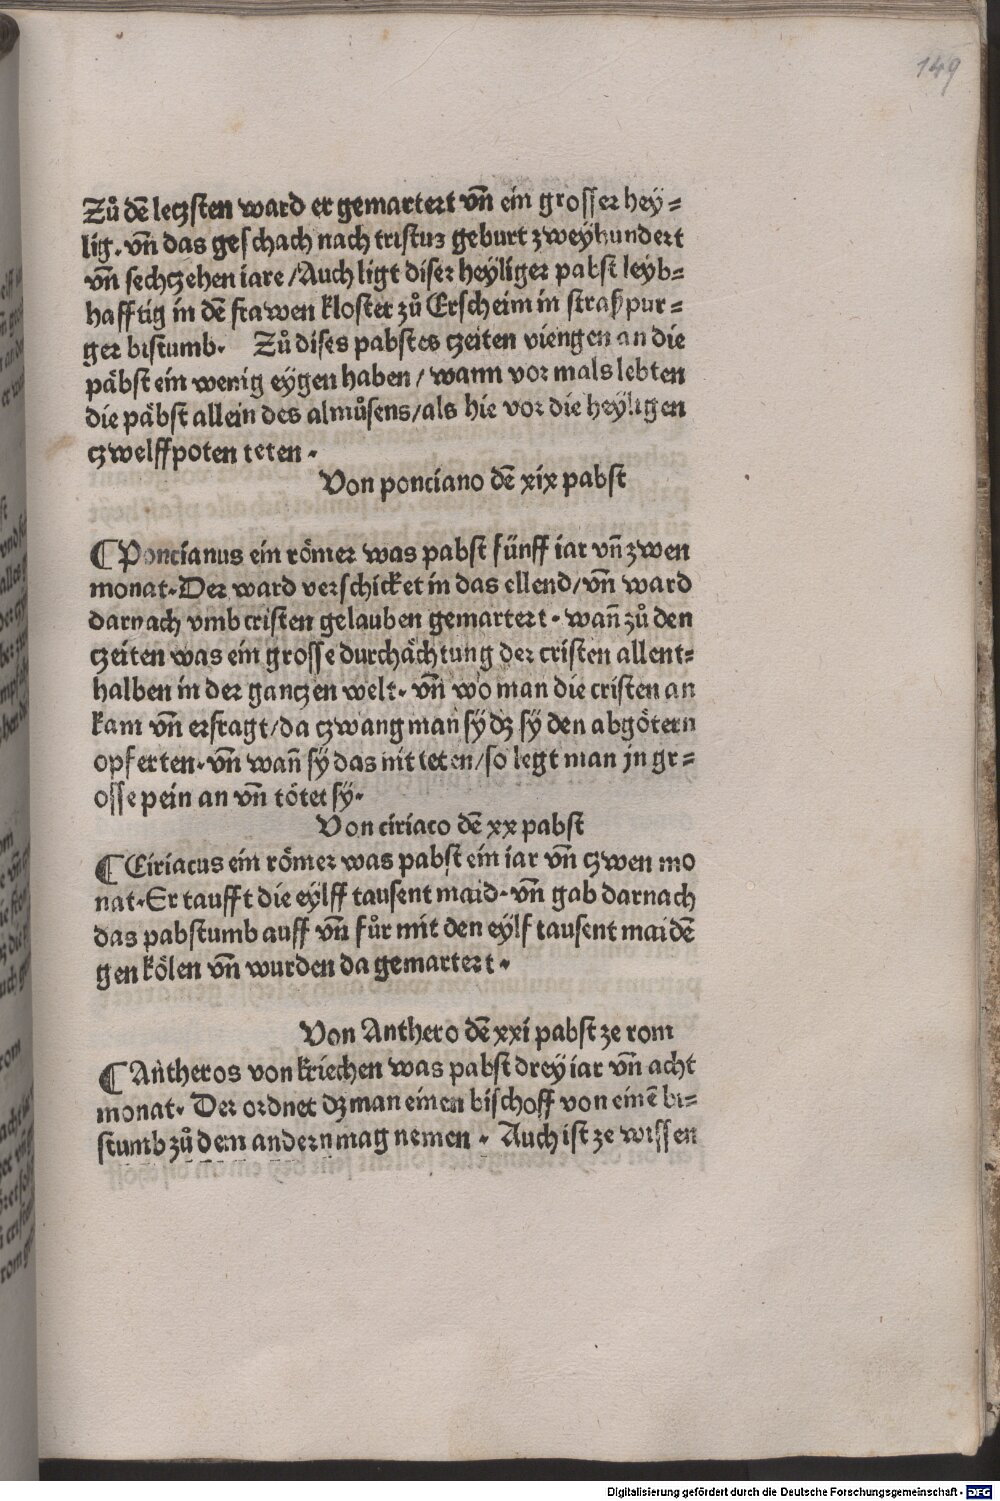 149
Zů dē leczsten ward er gemartert vñ ein grosser hey⸗
lig. vñ das geschach nach cristus geburt zweyhundert
vñ sechczehen iare /Auch ligt diser heÿliger pabst leÿb⸗
hafftig in dē frawen kloster zů Erscheim in straßpur⸗
ger bistumb. Zů dises pabstes czeiten viengen an die
päbst ein wenig eÿgen haben / wann vor mals lebten
die päbst allein des almůsens/als hie vor die heÿligen
czwelffpoten teten.
Von ponciano dē xix pabst
¶Poncianus ein römer was pabst fünff iar vñ zwen
monat. Der ward verschicket in das ellend/vñ ward
darnach vmb cristen gelauben gemartert. wañ zů den
czeiten was ein grosse durchächtung der cristen allent⸗
halben in der ganczen welt. vñ wo man die cristen an
kam vñ erfragt/da czwang man sÿ dz sÿ den abgötern
opferten. vñ wañ sÿ das nit teten/so legt man jn gr⸗
osse pein an vñ tötet sÿ.
Von ciriaco dē xx pabst
¶Ciriacus ein römer was pabst ein iar vñ czwen mo
nat. Er taufft die eÿlff tausent maid. vñ gab darnach
das pabstumb auff vñ fůr mit den eÿlf tausent maidē
gen kölen vñ wurden da gemartert.
Von Anthero dē xxi pabst ze rom
¶Antheros von kriechen was pabst dreÿ iar vñ acht
monat. Der ordnet dz man einen bischoff von einē bi⸗
stumb zů dem andern mag nemen. Auch ist ze wissen
Digitalisierung gefördert durch die Deutsche Forschungsgemeinschaft - DFG